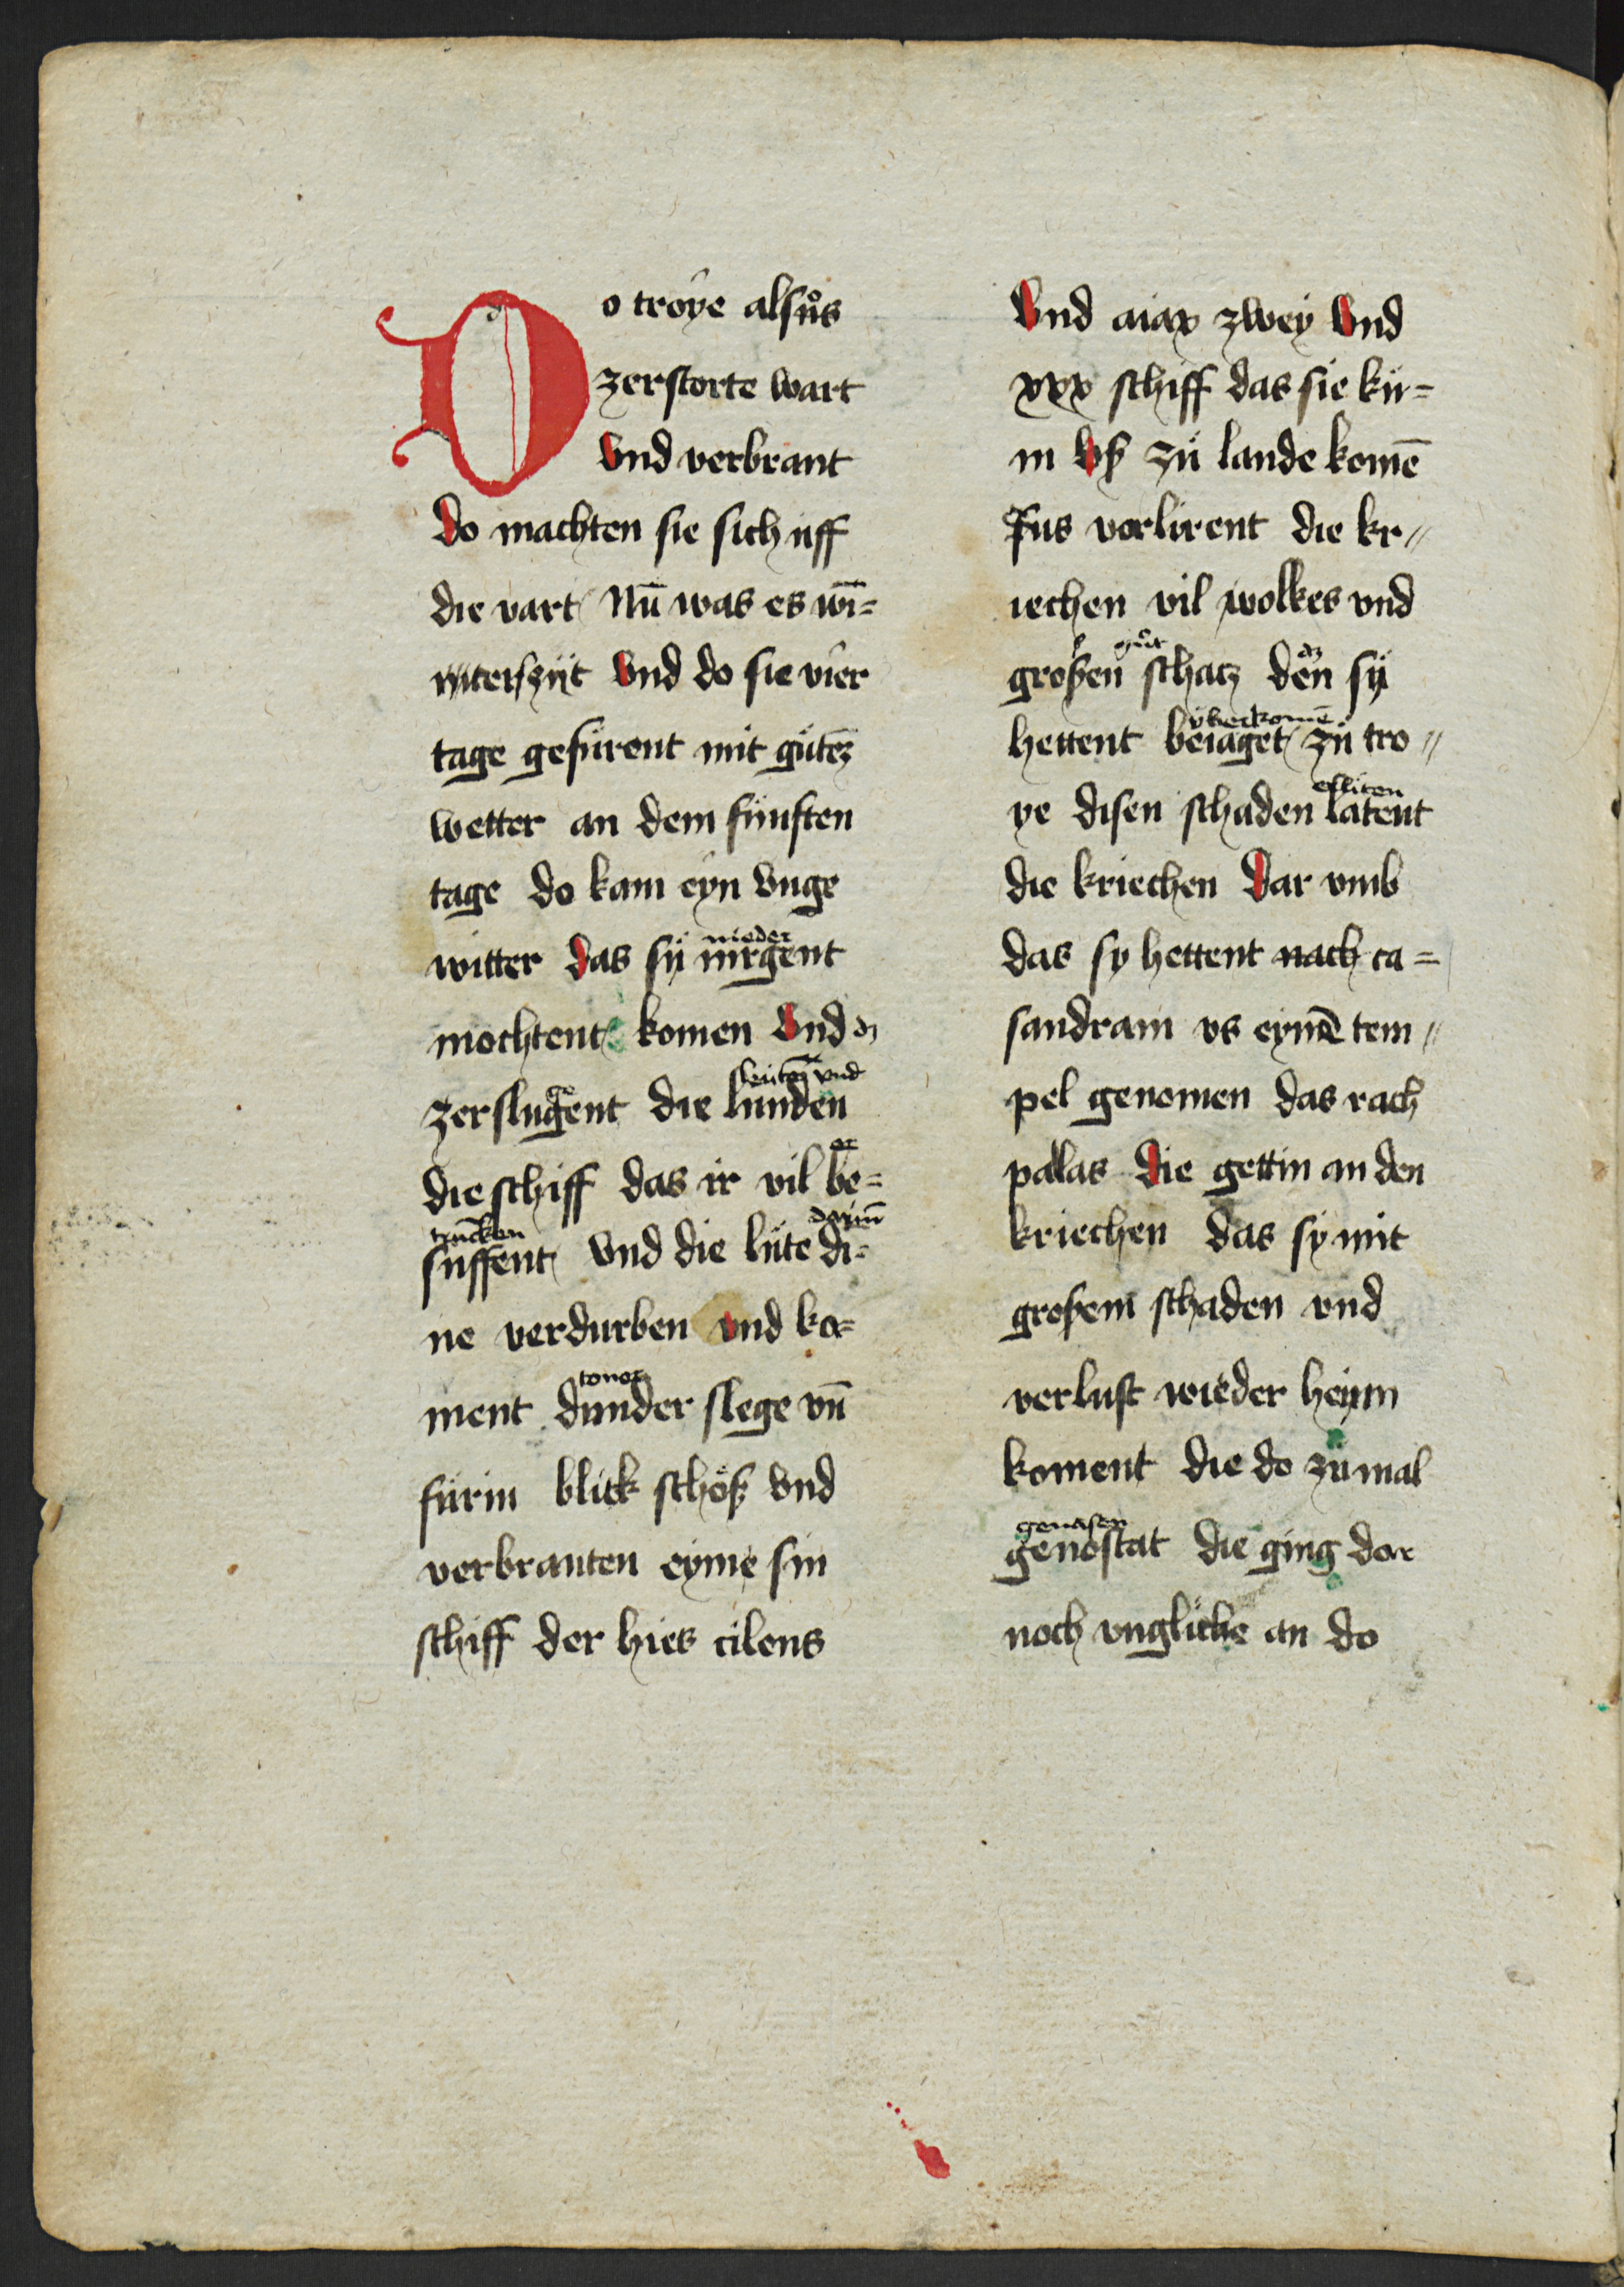 Do troye alsus̊
zerstorte wart
Vnd verbrant
do machten sie sich uff
die vart Nū was es wī=
nterszijt Vnd do sie vier
tage gefůrent mit gůtez
wetter an dem fünften
tage do kam eyn vnge
nieder
witter das sÿ nirgent
mochtent komen Vnd
vnd
zerslugent die lunden
er
die schiff das ir vil be=
truncken darinn
suffent Vnd die lüte di=
ne verdurben vnd ko=
toner
ment dunder slege vn̄
fürin blick schoß Vnd
verbranten eyme sin
schiff der hies cilens
Vnd aiax zwey Vnd
xxx schiff das sie kü=
m Vß zů lande komē
sus verlirent die kr=
iechen vil wolkes vnd
gůt dz
großen schatz den sÿ
vberkomē
hettent beiaget zů tro=
erliten
ye disen schaden latent
die kriechen Dar vmb
das sy hettent nach ca=
sandram vs eymē tem=
pel genomen das rach
pallas die gettin an den
kriechen das sy mit
großem schaden vnd
verlust wieder heym
koment die do zů mal
genasen
genostat die ging dar
noch vnglicke an do